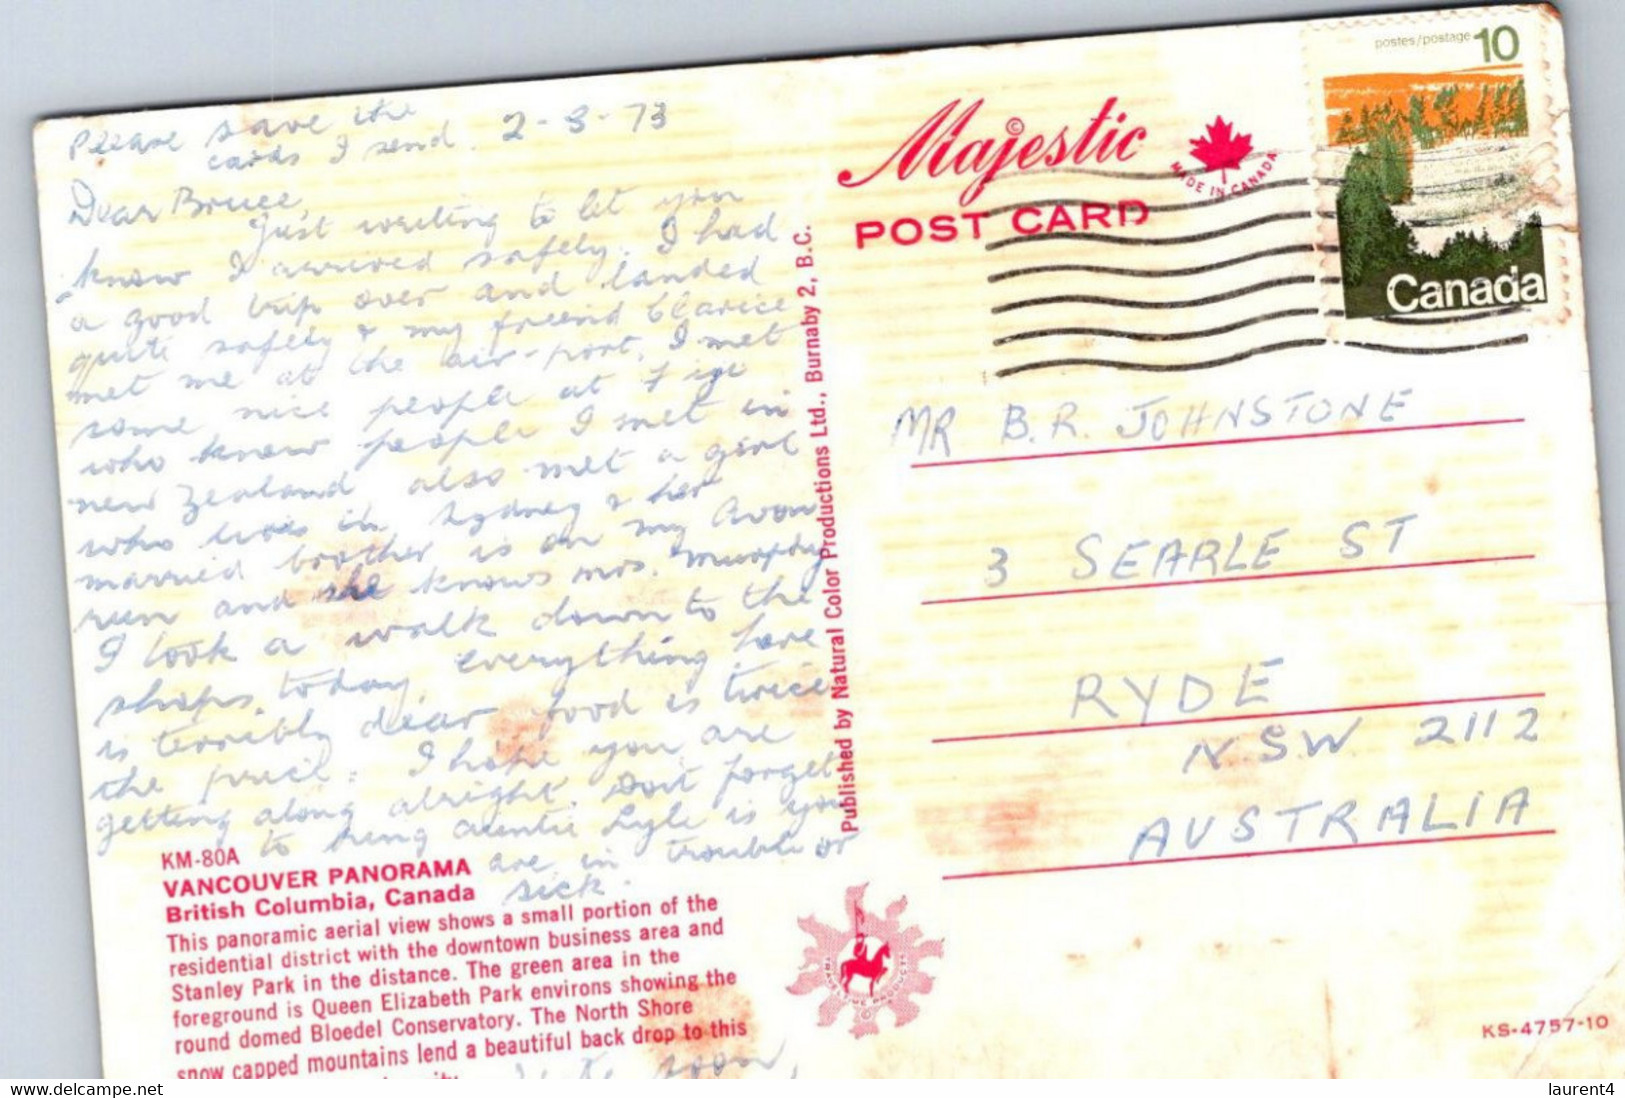 Please save the
cards I send. 2-3-73
Dear Bruce,
Just writing to let you
know I arrived safely. I had
a good trip over and landed
quite safely & my friend Clarice
met me at the air-port. I met
some nice people at Fiji
who knew people I met in
new Zealand also met a girl
who lives in Sydney & her
married brother is on my Avon
run and she knows mrs. Murphy
I took a walk down to the
shops. today, everything here
is terribly dear food is twice
the price. I hope you are
getting along alright. Dont forget
to ring auntie Lyle is you
are in trouble or
sick.
KM-80A
VANCOUVER PANORAMA
British Columbia, Canada
This panoramic aerial view shows a small portion of the
residential district with the downtown business area and
Stanley Park in the distance. The green area in the
foreground is Queen Elizabeth Park environs showing the
round domed Bloedel Conservatory. The North Shore
snow capped mountains lend a beautiful back drop to this
soon,
Published by Natural Color Productions Ltd., Burnaby 2, B.C.
Majestic ©
POST CARD
MADE IN CANADA
postes/postage 10
Canada
MR B.R. JOHNSTONE
3 SEARLE ST
RYDE
N.S.W. 2112
AUSTRALIA
KS-4757-10
www.delcampe.net
laurent4